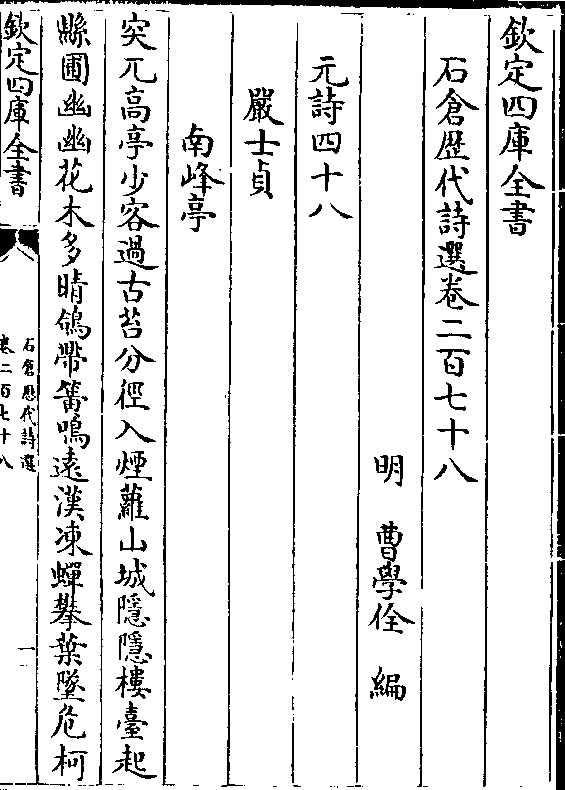 欽定四庫全書
石倉歷代詩選卷二百七十八
明 曹學佺 編
元詩四十八
嚴士貞
南峰亭
突兀高亭少客過古苔分徑入煙蘿山城隱隱樓臺起
縣圃幽幽花木多晴鴿帶籥鳴遠漢凍蟬攀葉墜危柯
欽定四庫全書
石倉歷代詩選
卷二百七十八
一